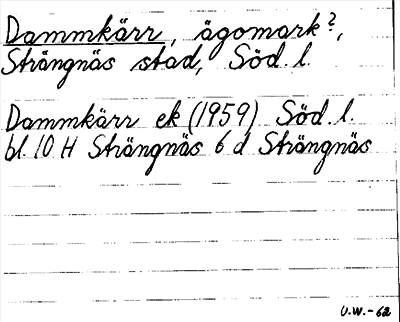 Dammkärr, ägomark?,
Strängnäs stad, Söd. l.
Dammkärr ek (1959) Söd. l.
bl. 10 H Strängnäs 6 d Strängnäs
U.W.-62